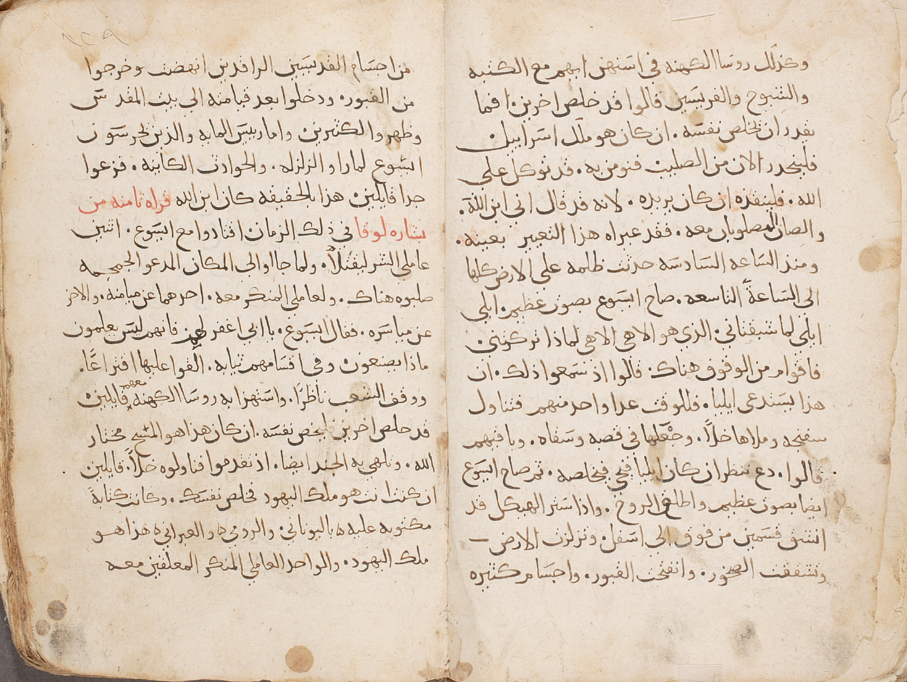 وكذلك روسا الكهنه في استهزايهم مع الكتبه
والشيوخ والفريسيين قالوا قد خلص اخرين افما
يقدر ان يخلص نفسه . ان كان هو ملك اسراييل
فلينحدر الان من الصليب فنومن به . قد توكل علي
الله . فلينقذه ان كان يريده . لانه قد قال اني ابن الله
واللصان المصلوبان معه . فقد عيراه هذا التعيير بعينه .
ومنذ الساعه السادسه حدثت ظلمه علي الارض كلها
الي الساعة التاسعه . صاح ايسوع بصوت عظيم . ايلي
ايلي لما شبقتاني . الذي هو الاهي الاهي لماذا تركتني
فاقوام من الوقوف هناك قالوا اذ سمعوا ذلك . ان
هذا يستدعي ايليا . فللوقت عدا واحد منهم فتناول
سفنجه وملاها خلا . وجعلها في قصبه وسقاه . وباقيهم
قالوا . دع ننظر ان كان ايليا يجي فيخلصه . ثم صاح ايسوع
ايضا بصوت عظيم واطلق الروح . واذا ستر الهيكل قد
انشق قسمين من فوق الي اسفل . وتزلزت الارض
وتشققت الصخور . وانفتحت القبور . واجسام كثيره
١٢٩
من اجسام القديسين الراقدين انهضت وخرجوا
من القبور . ودخلوا بعد قيامته الي بيت المقدس
وظهروا لكثيرين . واما رييس المايه والذين يحرسون
ايسوع لما راوا الزلزله . والحوادث الكاينه . فزعوا
جدا قايلين هذا بالحقيقه كان ابن الله قراه ثامنه من
بشاره لوقا في ذلك الزمان اقتادوا مع ايسوع . اثنين
عاملي الشر ليقتلا . ولما جاوا الي المكان المدعو الجمجمه
صلبوه هناك . ولعاملي المنكر معه . احدهما عن ميامنه . والاخر
عن مياسره . فقال ايسوع . يا ابي اغفر لهم فانهم ليس يعلمون
ماذا يصنعون وفي اقتسامهم ثيابه . القوا عليها اقتراعا .
ووقف الشعب ناظرا . واستهزا به روسا الكهنه معهم قايلين
قد خلص اخرين ليخلص نفسه . ان كان هذا هو المسيح مختار
الله . وتلهي به الجند ايضا . اذ تقدموا فناولوه خلا . قايلين
ان كنت انت هو ملك اليهود فخلص نفسك . وكانت كتابة
مكتوبه عليه باليوناني . والرومي والعبراني هذا هو
ملك اليهود . والواحد العاملي المنكر المعلقين معه